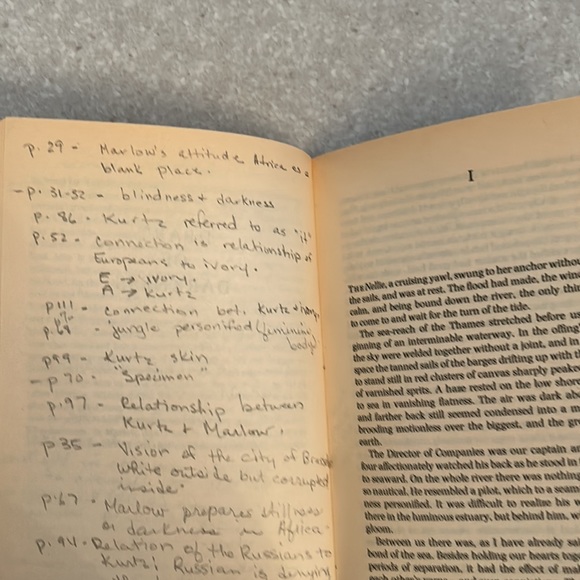 p.29 - Marlow's attitude Africa as a
blank place.
- p. 31-52 - blindness + darkness
p. 86 - Kurtz referred to as "it"
p. 52 - connection is relationship of
Europeans to ivory.
E → ivory.
A → Kurtz
p111 - connection bet. Kurtz +
p.69 - jungle personified (feminine
body)
p99 - Kurtz skin
- p 70 - "Specimen"
p.97 - Relationship between
Kurtz + Marlow.
p35 - Vision of the city of
white outside but corrupted
inside.
p.67 - Marlow prepares stillness
darkness in Africa.
p. 94 - Relation of the Russians to
Kurtz! Russian is denying
I
THE Nellie, a cruising yawl, swung to her anchor withou
the sails, and was at rest. The flood had made, the win
calm, and being bound down the river, the only thin
to come to and wait for the turn of the tide.
The sea-reach of the Thames stretched before us
ginning of an interminable waterway. In the offing
the sky were welded together without a joint, and in
space the tanned sails of the barges drifting up with t
to stand still in red clusters of canvas sharply peake
of varnished sprits. A haze rested on the low shore
to sea in vanishing flatness. The air was dark ab
and farther back still seemed condensed into a m
brooding motionless over the biggest, and the gr
earth.
The Director of Companies was our captain a
four affectionately watched his back as he stood in
to seaward. On the whole river there was nothing
so nautical. He resembled a pilot, which to a seam
ness personified. It was difficult to realise his w
there in the luminous estuary, but behind him, w
gloom.
Between us there was, as I have already sai
bond of the sea. Besides holding our hearts toge
periods of separation, it had the effect of ma